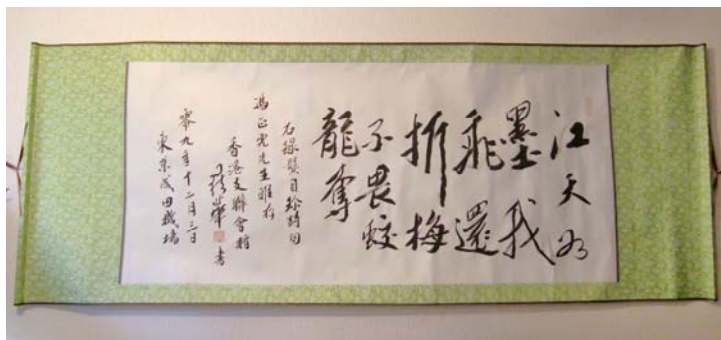 江天如
墨我
飛還
折梅
不畏蛟
龍奪
右錄
馮正虎先生雅存
香港支聯會贈
司徒華 書
零九年十二月三日
東京成田機場